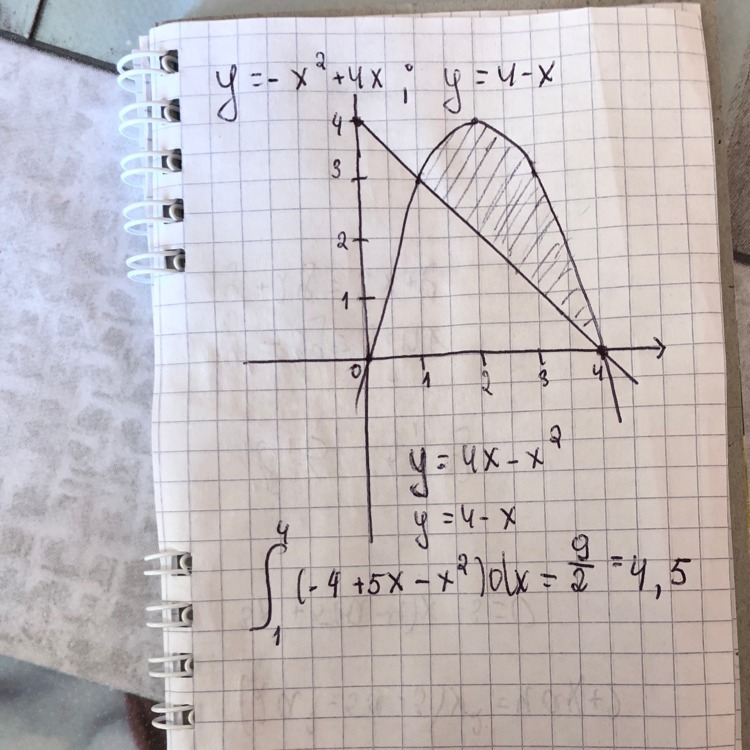 y = - x² + 4x ; y = 4 - x
4
3
2
1
0 1 2 3 4
y = 4x - x²
y = 4 - x
∫₁⁴ (- 4 + 5x - x²) dx = 9/2 = 4,5